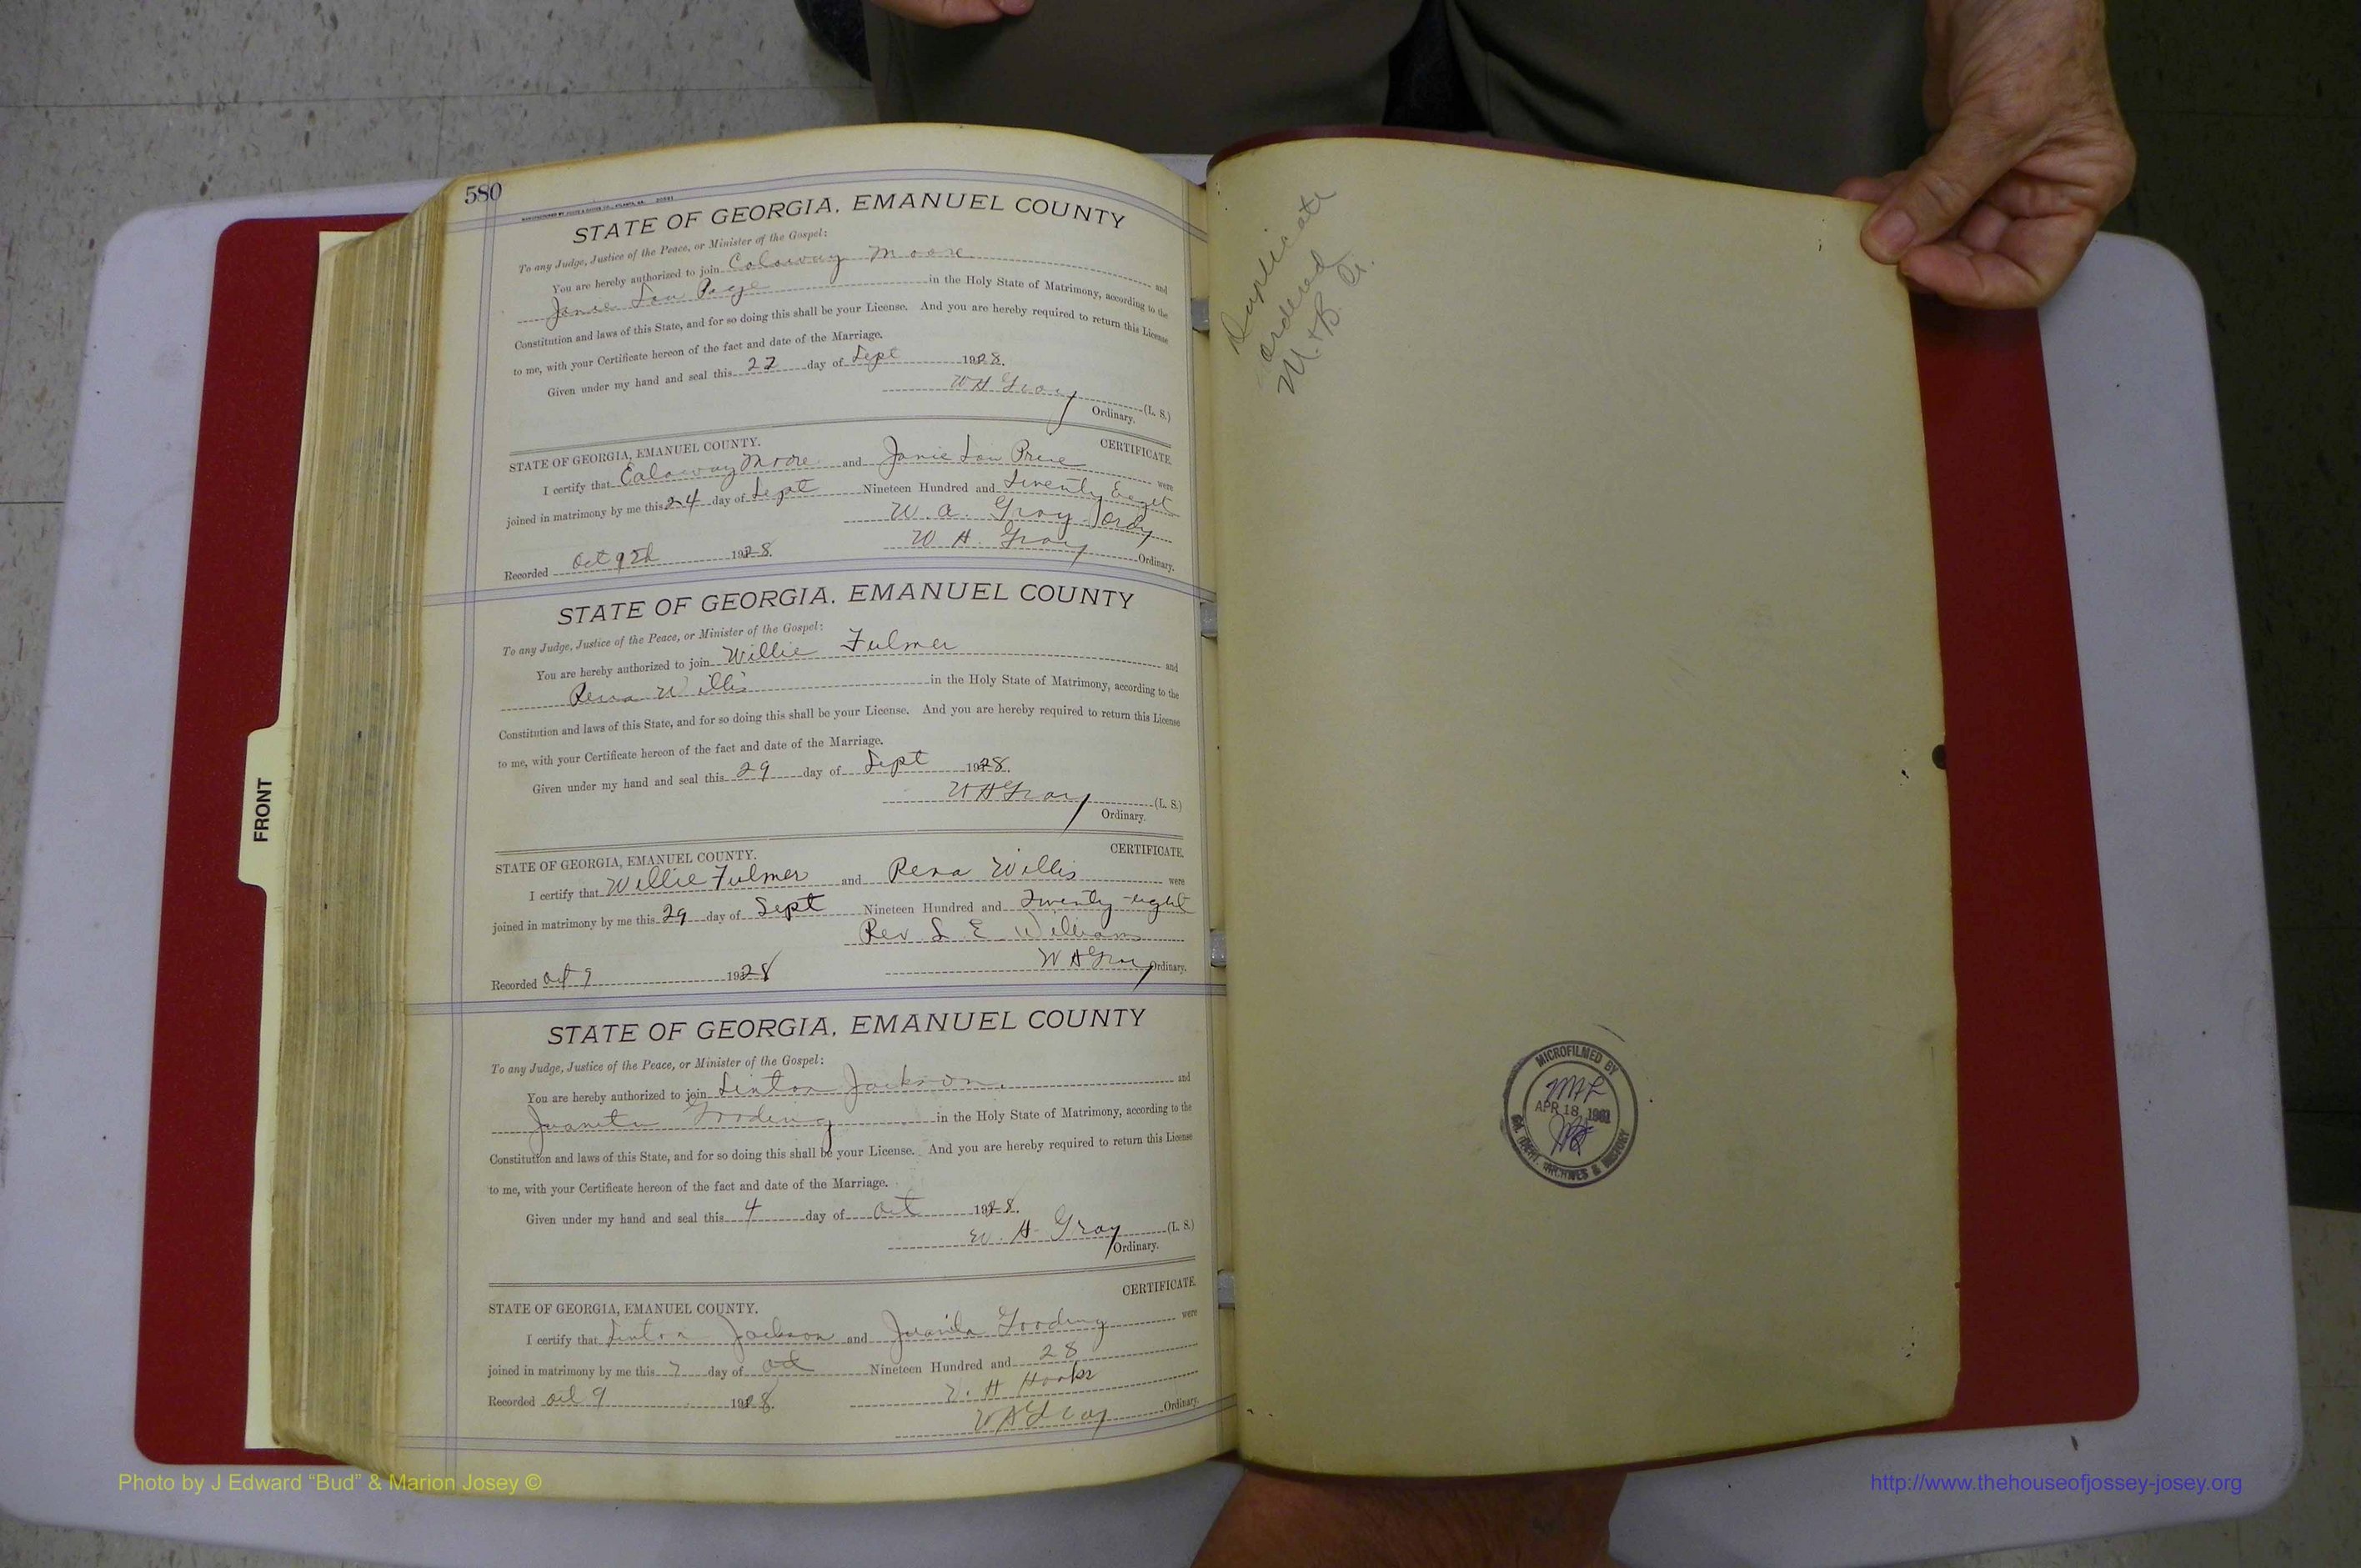 580
STATE OF GEORGIA, EMANUEL COUNTY
To any Judge, Justice of the Peace, or Minister of the Gospel:
You are hereby authorized to join Caloway Moore and
Janie Lou in the Holy State of Matrimony, according to the
Constitution and laws of this State, and for so doing this shall be your License. And you are hereby required to return this License
to me, with your Certificate hereon of the fact and date of the Marriage.
Given under my hand and seal this 22 day of Sept 1928.
W H Gray (L. S.)
Ordinary.
CERTIFICATE.
STATE OF GEORGIA, EMANUEL COUNTY.
I certify that Caloway Moore and Janie Lou were
joined in matrimony by me this 24 day of Sept Nineteen Hundred and Twenty
W. A. Gray Ordy
W H. Gray Ordinary.
Recorded Oct 1928.
STATE OF GEORGIA, EMANUEL COUNTY
To any Judge, Justice of the Peace, or Minister of the Gospel:
You are hereby authorized to join Willie Fulmer and
Rena Willis in the Holy State of Matrimony, according to the
Constitution and laws of this State, and for so doing this shall be your License. And you are hereby required to return this License
to me, with your Certificate hereon of the fact and date of the Marriage.
Given under my hand and seal this 29 day of Sept 1928.
W H Gray (L. S.)
Ordinary.
CERTIFICATE.
STATE OF GEORGIA, EMANUEL COUNTY.
I certify that Willie Fulmer and Rena Willis were
joined in matrimony by me this 29 day of Sept Nineteen Hundred and Twenty-eight
Rev S E Williams
W H Gray Ordinary.
Recorded Oct 9 1928
STATE OF GEORGIA, EMANUEL COUNTY
To any Judge, Justice of the Peace, or Minister of the Gospel:
You are hereby authorized to join Linton Jackson and
Juanita Gooding in the Holy State of Matrimony, according to the
Constitution and laws of this State, and for so doing this shall be your License. And you are hereby required to return this License
to me, with your Certificate hereon of the fact and date of the Marriage.
Given under my hand and seal this 4 day of Oct 1928.
W. H Gray (L. S.)
Ordinary.
CERTIFICATE.
STATE OF GEORGIA, EMANUEL COUNTY.
I certify that Linton Jackson and Juanita Gooding were
joined in matrimony by me this 7 day of Oct Nineteen Hundred and 28
H Hooks
Recorded Oct 9 1928.
W H Gray Ordinary.
FRONT
Duplicate
ordered
M. & B. Co.
MICROFILMED BY
APR 18 1961
GA. DEPT. ARCHIVES & HISTORY
Photo by J Edward “Bud” & Marion Josey ©
http://www.thehouseofjossey-josey.org